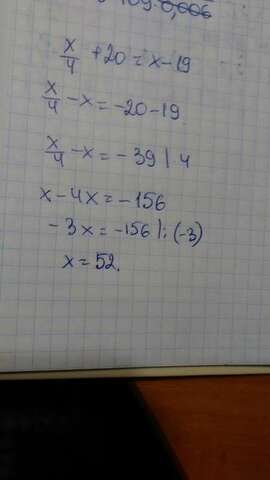 x/4 + 20 = x - 19
x/4 - x = -20 - 19
x/4 - x = -39 | 4
x - 4x = -156
-3x = -156 |: (-3)
x = 52.